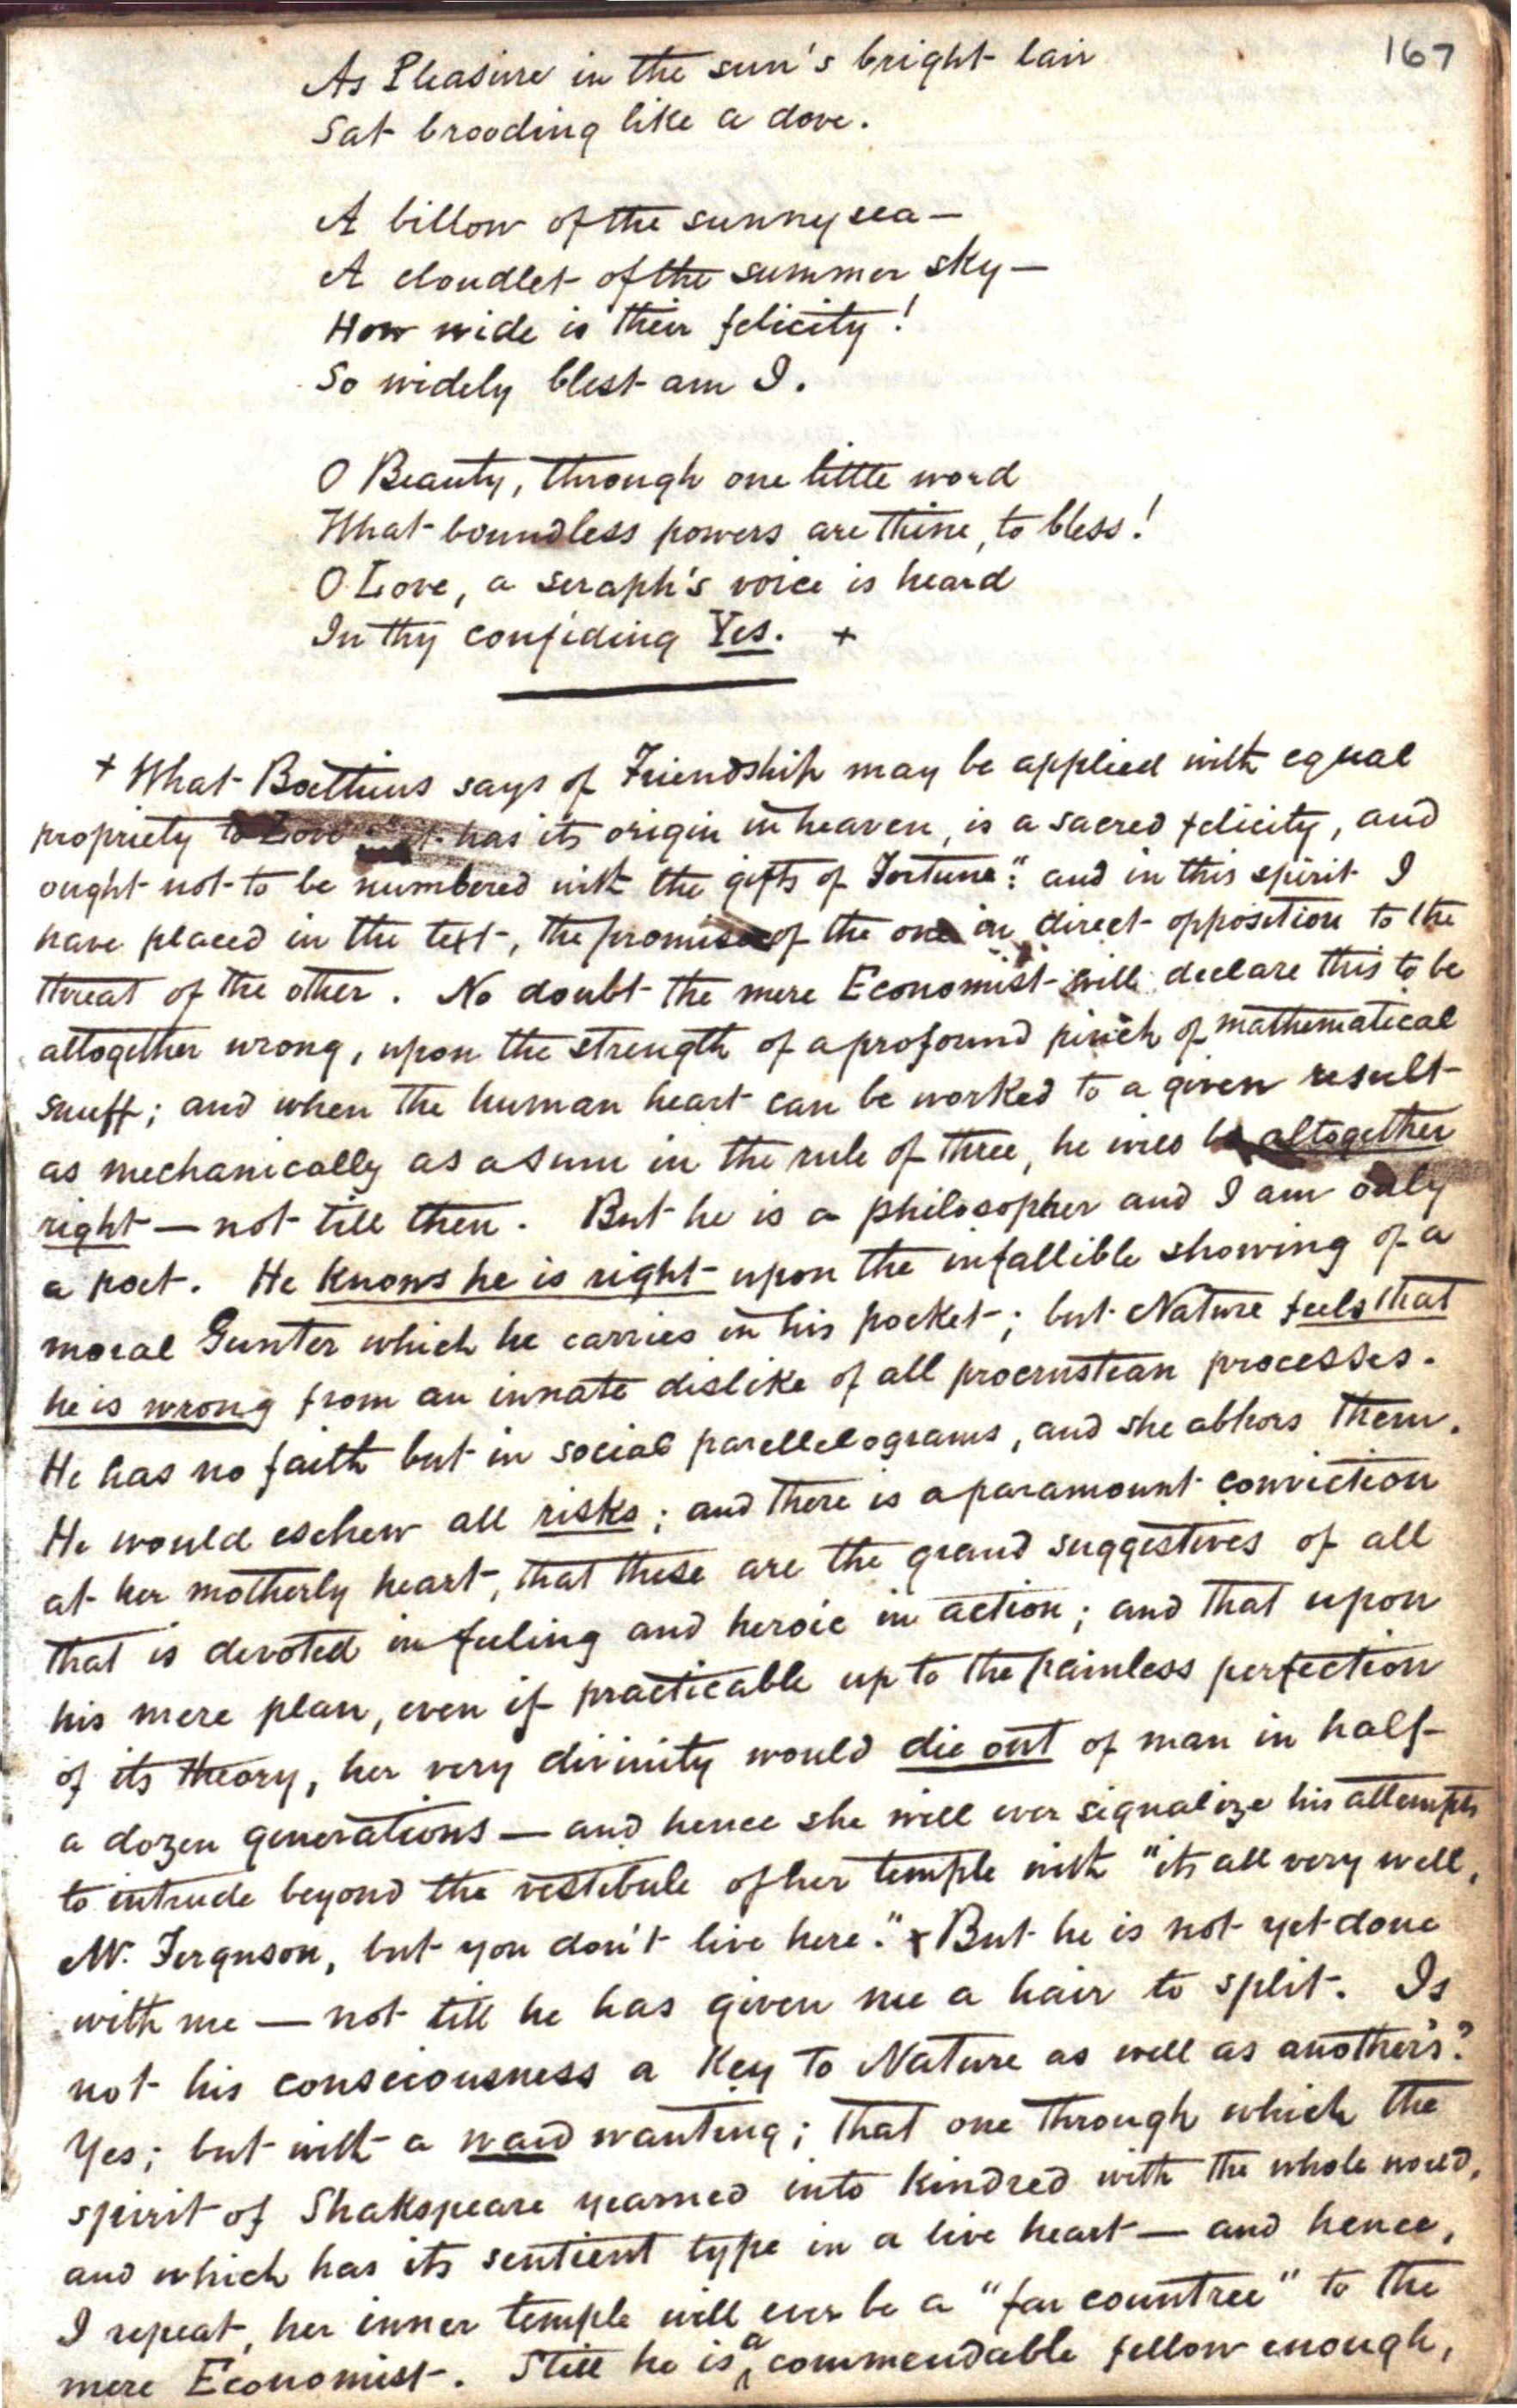 167
As Pleasure in the sun's bright lair
Sat brooding like a dove.
A billow of the sunny sea —
A cloudlet of the summer sky —
How wide is their felicity!
So widely blest am I.
O Beauty, through one little word
What boundless powers are thine, to bless!
O Love, a seraph's voice is heard
In thy confiding Yes. +
+ What Boethius says of Friendship may be applied with equal
propriety to Love : "it has its origin in heaven, is a sacred felicity, and
ought not to be numbered with the gifts of Fortune": and in this spirit I
have placed in the text, the promise of the one in direct opposition to the
threat of the other. No doubt the mere Economist will declare this to be
altogether wrong, upon the strength of a profound pinch of mathematical
snuff; and when the human heart can be worked to a given result
as mechanically as a sum in the rule of three, he will be altogether
right — not till then. But he is a philosopher and I am only
a poet. He knows he is right upon the infallible showing of a
moral Gunter which he carries in his pocket; but Nature feels that
he is wrong from an innate dislike of all procrustean processes.
He has no faith but in social parellelograms, and she abhors them.
He would eschew all risks; and there is a paramount conviction
at her motherly heart, that these are the grand suggestives of all
that is devoted in feeling and heroic in action; and that upon
his mere plan, even if practicable up to the painless perfection
of its theory, her very divinity would die out of man in half-
a dozen generations — and hence she will ever signalize his attempts
to intrude beyond the vestibule of her temple with "its all very well,
Mr. Ferguson, but you don't live here." x But he is not yet done
with me — not till he has given me a hair to split. Is
not his consciousness a Key to Nature as well as another's?
Yes; but with a ward wanting; that one through which the
spirit of Shakspeare yearned into kindred with the whole world,
and which has its sentient type in a live heart — and hence,
I repeat, her inner temple will ever be a "far countree" to the
mere Economist. Still he is a commendable fellow enough,